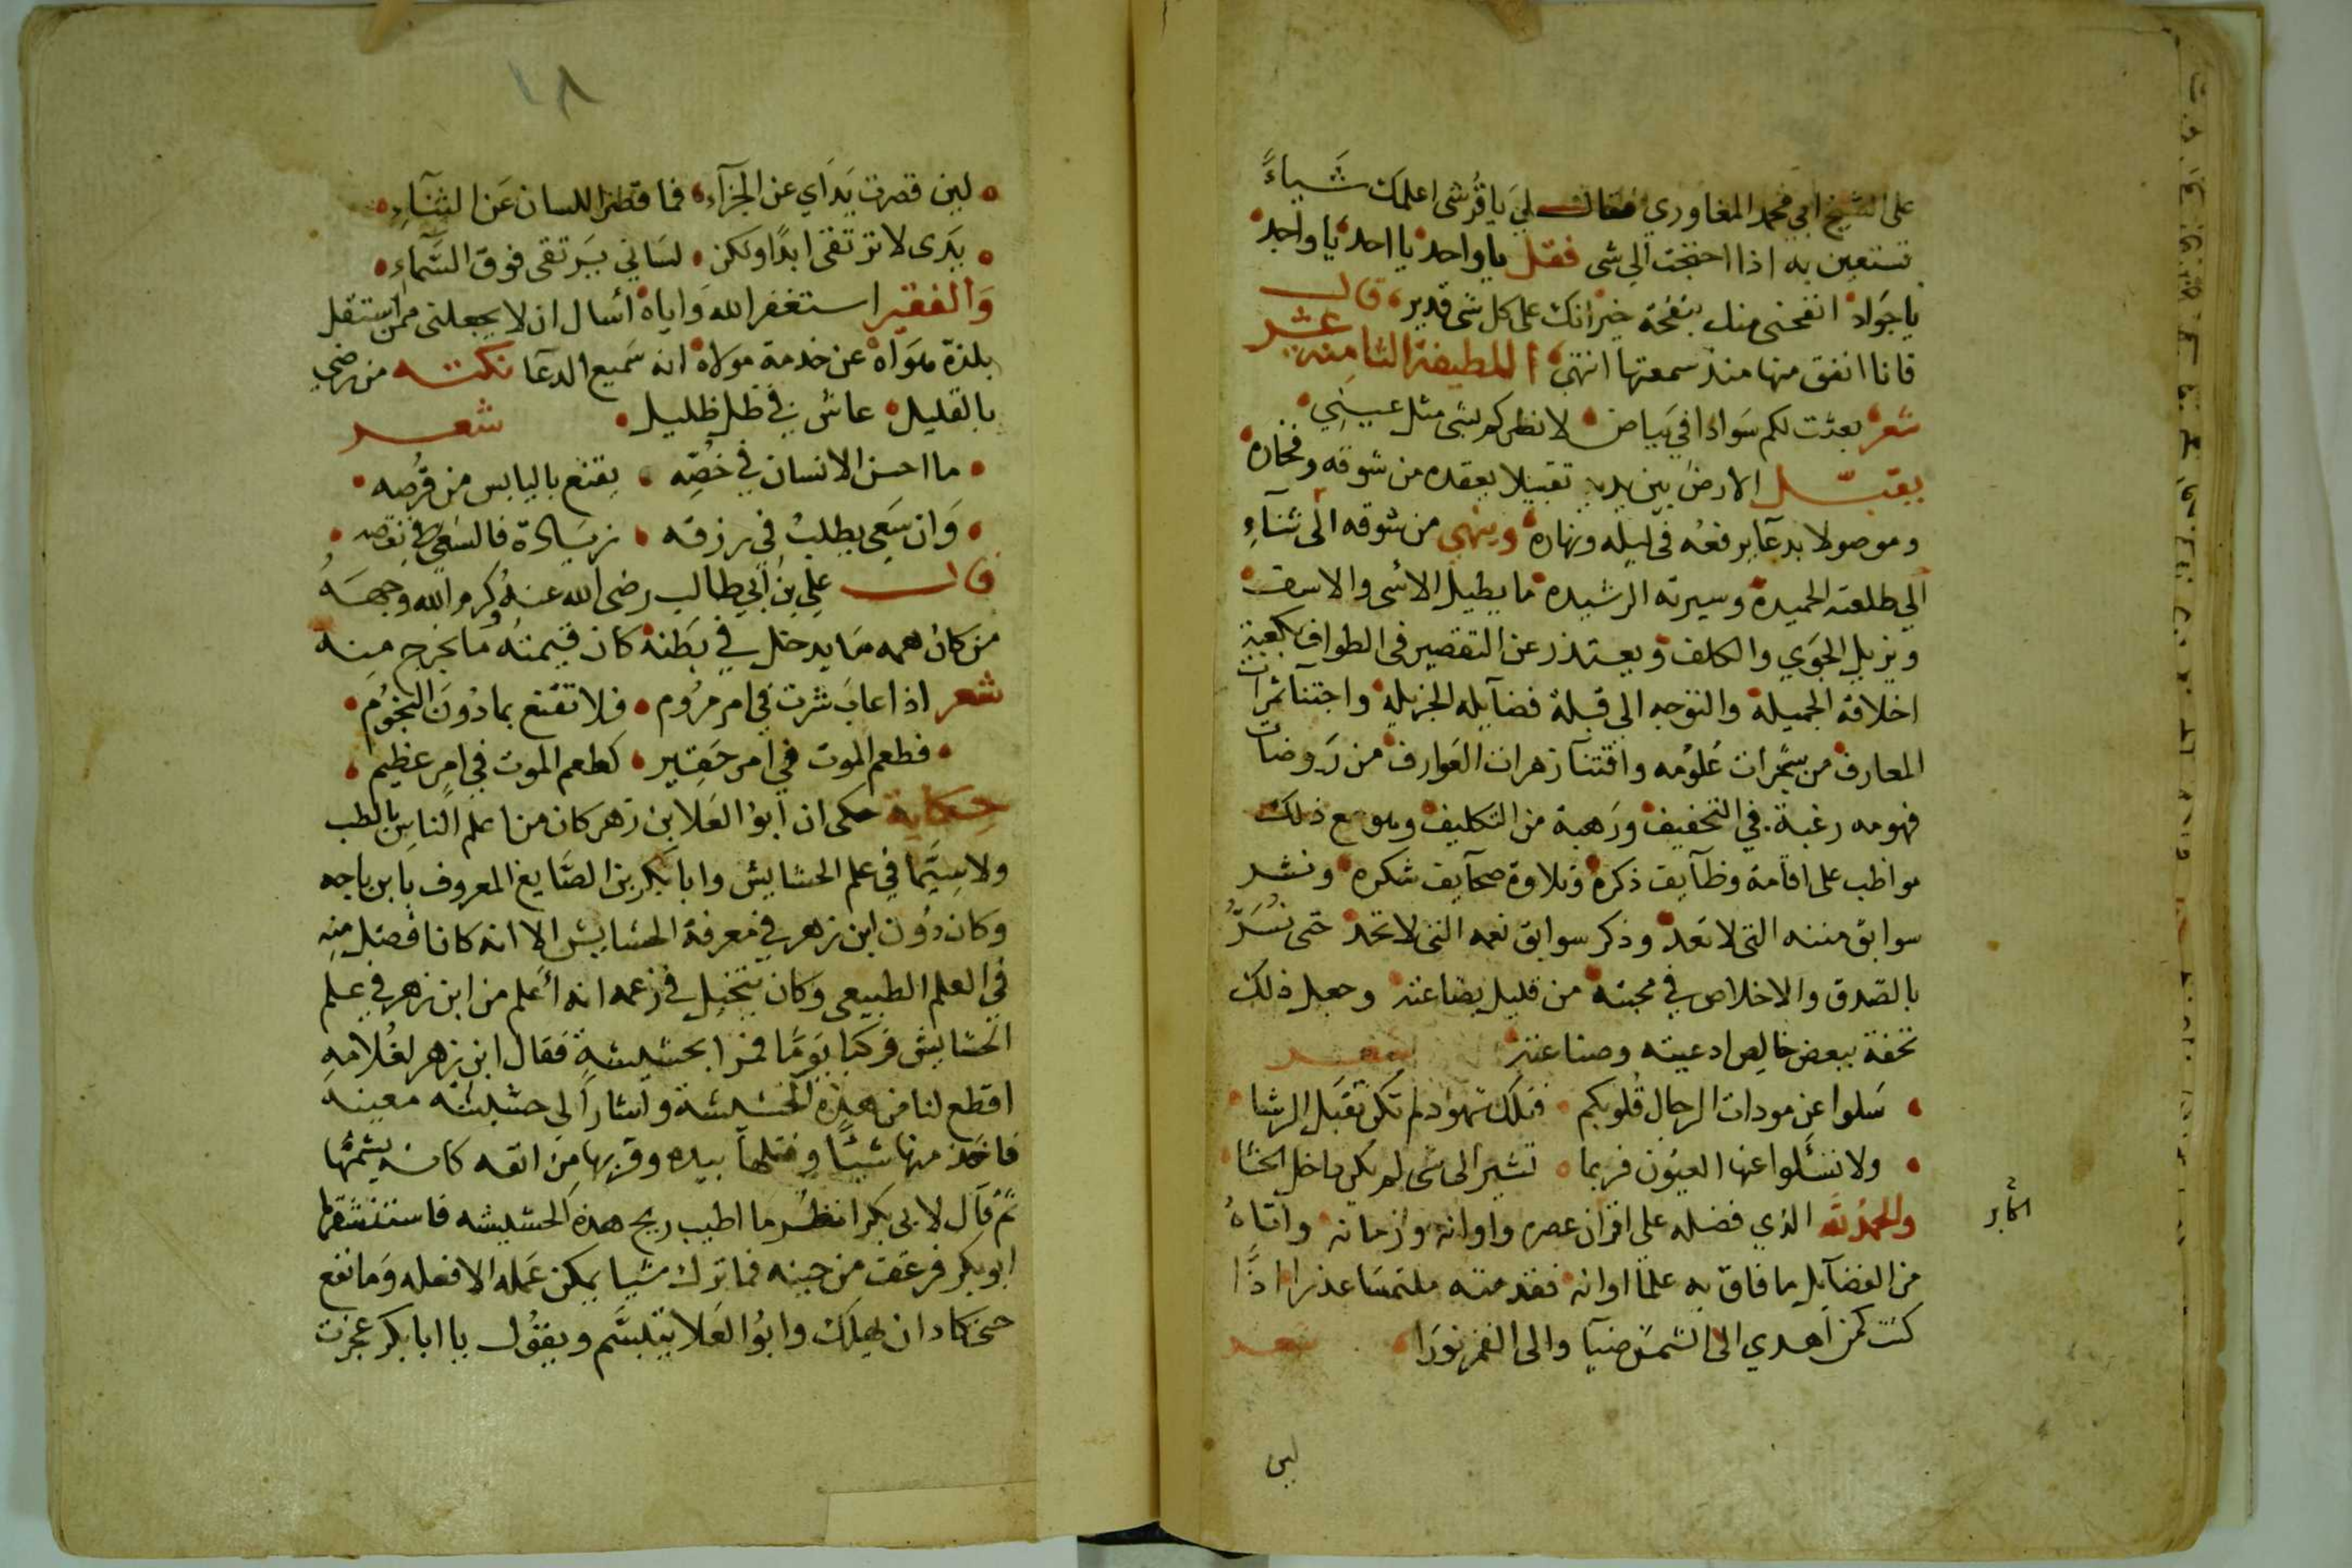 على الشيخ ابي محمد المغاوري فقال لي يا قرشي اعلمك شياءً
تستعين به اذا احتجت الي شى فقل يا واحد يا احد يا واجد
يا جواد انفحني منك بنفحة خير انك على كل شى قدير قال
فانا انفق منها منذ سمعتها انتهى اللطيفة الثامنة عشر
شعر بعثت لكم سوادا في بياض لانظركم بشى مثل عيني
يقبّل الارض بين يديه تقبيلا يعقده من شوقه وفخاره
وموصولا بدعآ يرفعه في ليله ونهاره وينهي من شوقه الى ثنآءِ
الي طلعته الحميدة وسيرته الرشيده ما يطيل الاسى والاسف
ويزيل الجوي والكلف ويعتذر عن التقصير فى الطواف بكعبة
اخلاقه الجميلة والتوجه الى قبلة فضآيله الجزيلة واجتنآ ثمرات
المعارف من سمرات علومه واقتنآ زهرات العوارف من روضات
فهومه رغبة في التخفيف ورهبة من التكليف وهو مع ذلك
مواظب على اقامة وظآيف ذكره وتلاوة صحآيف شكره ونشر
سوابق مننه التى لا تعد وذكر سوابق نعمه التى لا تحد حتى
بالصدق والاخلاص في محبته من قليل بضاعته وجعل ذلك
تحفة ببعض خالص ادعيته وصناعته شعر
سلوا عن مودات الرجال قلوبكم فتلك شهود لم تكن تقبل الرشا
ولا تسئلوا عنها العيون فربما تشير الى شى لم يكن داخل الحشا
والحمد لله الذي فضله على اقران عصره واوانه وازمانه وآتاهُ
من الفضآيل ما فاق به علمآ اوانه فقدمته ملتمسا عذرا اذًا
كنت كمن اهدي الى الشمس ضيآ والى القمر نورا شعر
لين
١٨
لين قصرت يداي عن الجزآء فما قصر اللسان عن الثنآءِ
يدى لا ترتقى ابدًا ولكن لساني يرتقى فوق السمآءِ
والفقير استغفر الله واياه أسال ان لا يجعلنى ممن استقل
بلذة هواه عن خدمة مولاه انه سميع الدعآ نكته من رضي
بالقليل عاش في ظل ظليل شعر
ما احسن الانسان في خُصِّه يقنع باليابس من قرصه
وان سعى يطلب في رزقه زيادة فالسعي في نقصه
قال علي بن ابي طالب رضى الله عنه وكرم الله وجهه
من كان همه ما يدخل في بطنه كان قيمته ما يخرج منه
شعر اذا غامرت في امر مروم فلا تقنع بما دون النجوم
فطعم الموت في امر حقير كطعم الموت في امر عظيم
حكاية حكى ان ابو العلا بن زهر كان من اعلم الناس بالطب
ولا سيما في علم الحشايش وابا بكر بن الصايغ المعروف بابن باجه
وكان دون ابن زهر في معرفة الحشايش الا انه كان افضل منه
في العلم الطبيعى وكان يتخيل في زعمه انه أعلم من ابن زهر في علم
الحشايش فركبا يومًا فمرا بحشيشة فقال ابن زهر لغلامه
اقطع لنا من هذه الحشيشة واشار الى حشيشة معينه
فاخذ منها شيئًا وفتلها بيده وقربها من انفه كانه يشمها
ثم قال لابى بكر انظر ما اطيب ريح هذه الحشيشه فاستنشقها
ابو بكر فرعف من حينه فما ترك شيا يمكن عمله الا فعله وما نفع
حتى كاد ان يهلك وابو العلا يتبسم ويقول يا ابا بكر عجزت